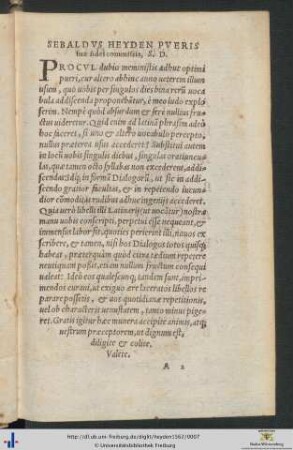 SEBALDVS HEYDEN PVERIS
suæ fidei commissis, S. D.
PROCVL dubio meministis adhuc optimi
pueri, cur altero abhinc anno ueterem illum
usum, quo uobis per singulos dies bina rerū uoca
bula addiscenda proponebātur, è meo ludo explo
serim. Nempe quòd absurdum & ferè nullius fru=
ctus uideretur. Quid enim ad latinā phrasim adeò
hoc faceret, si uno & altero uocabulo percepto,
nullus præterea usus accederet? Substitui autem
in locū uobis singulis diebus, singulas oratiuncu=
las, quæ tamen octo syllabas non excederent, addi=
scendas: idq; in formā Dialogorū, ut sic in addi=
scendo gratior facultas, & in repetendo iucun=
dior cōmoditas rudibus adhuc ingenijs accederet.
Quia uerò libelli illi Latinarij (ut uocātur) nostra
manu uobis conscripti, perpetui esse nequeant, &
immensus labor sit, quoties perierint illi, nouos ex
scribere, & tamen, nisi hos Dialogos totos quisq;
habeat, præterquàm quòd citra tedium repetere
neutiquam possit, etiam nullum fructum consequi
ualeat: Ideò eos qualescunq;, tandem sunt, impri=
mendos curaui, ut exiguo ære laceratos libellos re
parare possitis, & ob quotidianæ repetitionis,
uel ob characteris uenustatem, tanto minus pige=
ret. Gratis igitur hæc munera accipite animis, atq;
uestrum præceptorem, ut dignum est,
diligite & colite.
Valete.
A 2
http://dl.ub.uni-freiburg.de/diglit/heyden1562/0007
© Universitätsbibliothek Freiburg
Baden-Württemberg